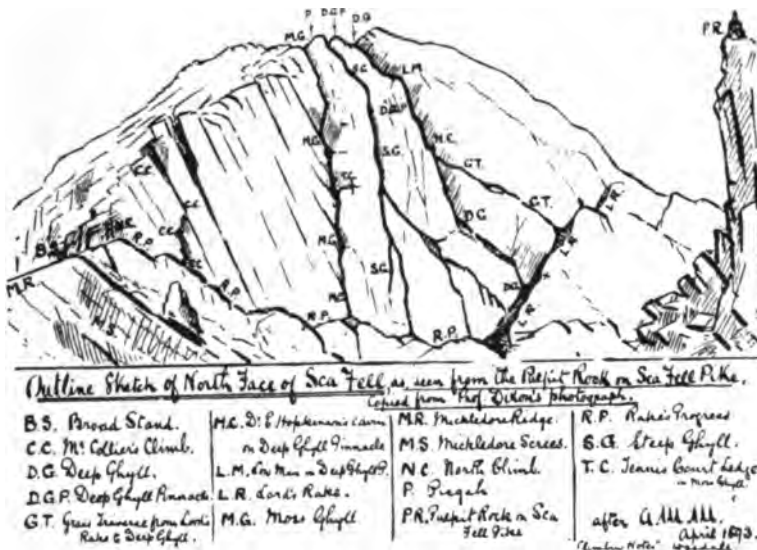 P. D.G.P. D.G.
M.G.
P.R.
S.G.
L.M.
D.G.P.
M.G.
S.G.
H.C.
C.C.
G.T.
T.C.
C.C.
G.T.
L.R.
B.S.
N.C.
R.P.
C.C.
M.G.
D.G.
L.R.
C.C.
S.G.
M.R.
R.P.
M.G.
D.G.
L.R.
M.S.
R.P.
R.P.
Outline Sketch of North Face of Sca Fell, as seen from the Pulpit Rock on Sca Fell Pike.
Copied from Prof. Dixon's photograph.
B.S. Broad Stand.
C.C. Mr Collier's Climb.
D.G. Deep Ghyll.
D.G.P. Deep Ghyll Pinnacle.
G.T. Great Traverse from Lord's
Rake to Deep Ghyll.
M.C. Dr E Hopkinson's Cairn
on Deep Ghyll Pinnacle
L.M. Low Man on Deep Ghyll P.
L.R. Lord's Rake.
M.G. Moss Ghyll
M.R. Mickledore Ridge.
M.S. Mickledore Screes.
N.C. North Climb.
P. Pisgah
P.R. Pulpit Rock on Sca
Fell Pike
R.P. Rake's Progress
S.G. Steep Ghyll.
T.C. Tennis Court Ledge
in Moss Ghyll.
after
April 1893.
"Climbers Notes"